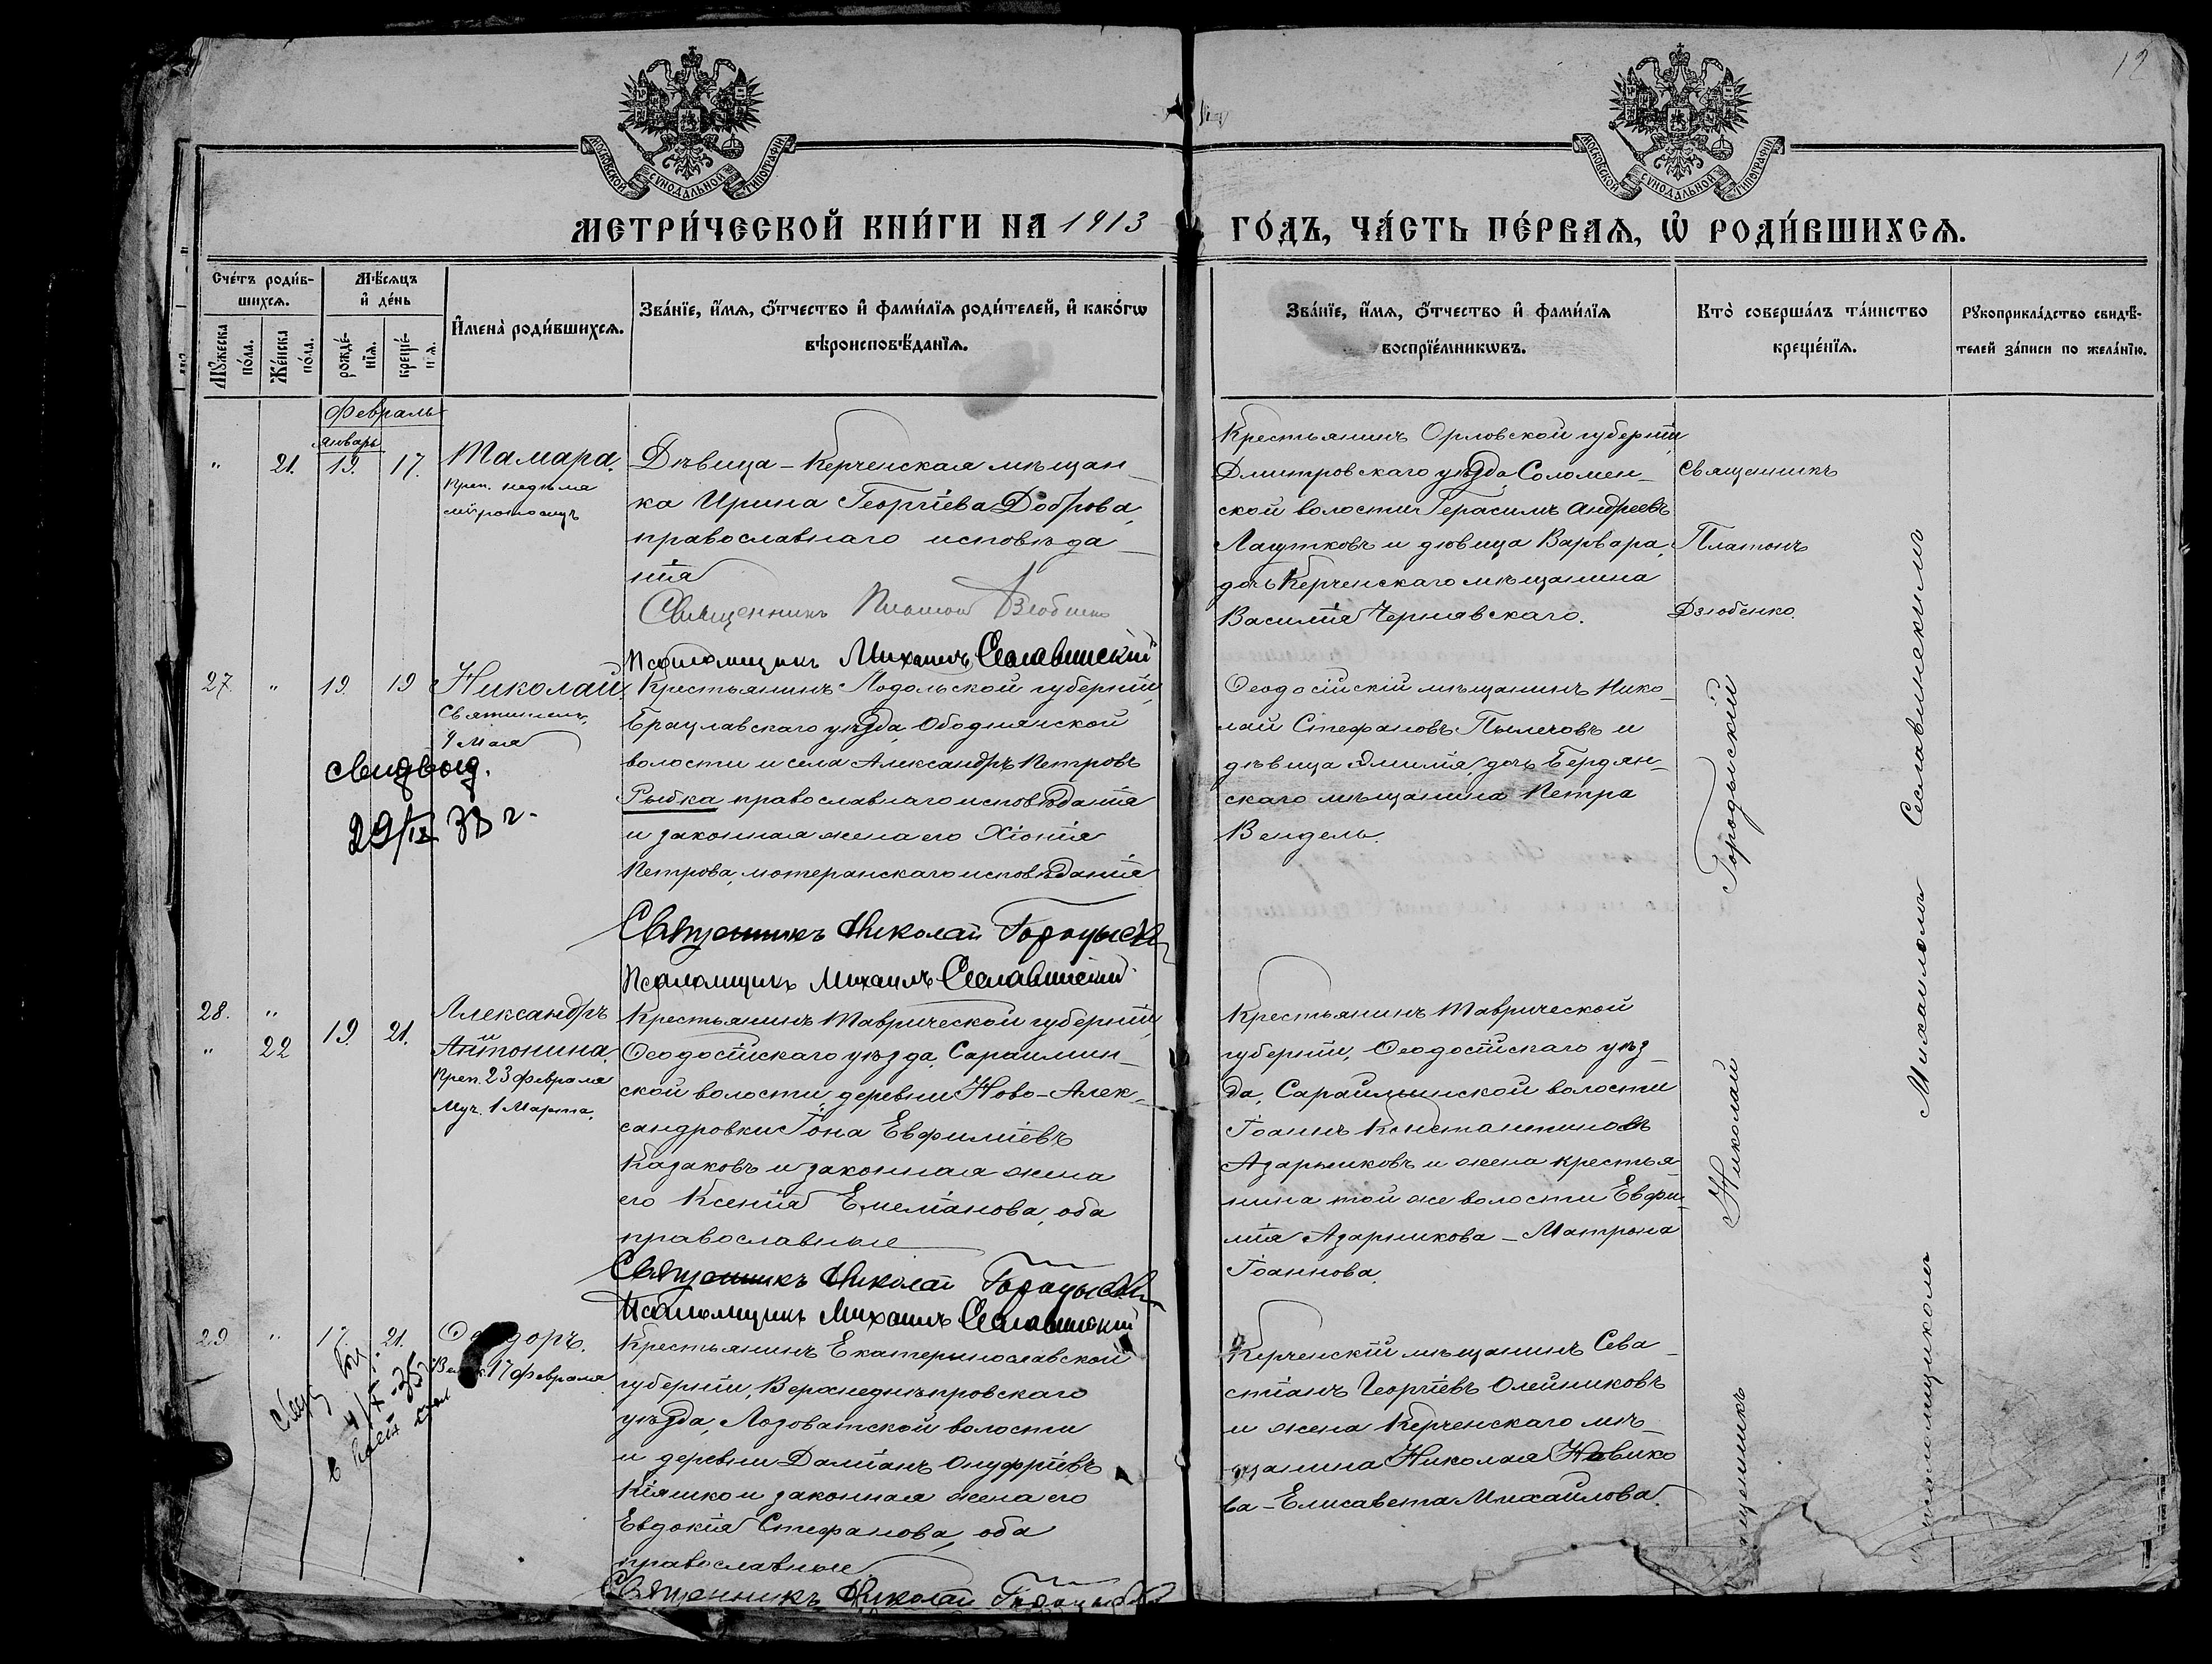 12
МОСКОВСКОЙ СѴНОДАЛЬНОЙ ТИПОГРАФІИ
МОСКОВСКОЙ СѴНОДАЛЬНОЙ ТИПОГРАФІИ
МЕТРИ́ЧЕСКОЙ КНИ́ГИ НА 1913 ГО́ДЪ, ЧА́СТЬ ПЕ́РВАѦ, Ѡ҆ РОДИ́ВШИХСѦ.
Сче́тъ роди́в-
шихсѧ.
Мꙋжеска по́ла.
Же́нска по́ла.
Мѣ́сѧцъ
и҆ де́нь
рожде́-
нїѧ.
креще́-
нїѧ.
И҆мена̀ роди́вшихсѧ.
Зва́нїе, и҆́мѧ, ѻ҆́тчество и҆ фами́лїѧ роди́телей, и҆ како́гѡ
вѣроисповѣ́данїѧ.
Зва́нїе, и҆́мѧ, ѻ҆́тчество и҆ фами́лїѧ
воспрїе́мникѡвъ.
Кто̀ соверша́лъ та́инство
креще́нїѧ.
Рꙋкоприкла́дство свидѣ́-
телей за́писи по жела́нїю.
Февраль
январь
" 21. 19. 17. Тамара.
Преп. недѣля
мѵроносицъ
Дѣвица - Керченская мѣщан-
ка Ирина Георгіева Доброва,
православнаго исповѣда-
нія
Священникъ Платонъ Дзюбенко
Псаломщикъ Михаилъ Сеславинскій
Крестьянинъ Орловской губерніи,
Дмитровскаго уѣзда, Соломен-
ской волости Герасимъ Андреевъ
Лашутковъ и дѣвица Варвара,
дочь Керченскаго мѣщанина
Василія Чернявскаго.
Священникъ
Платонъ
Дзюбенко.
27. " 19. 19 Николай.
Святитель,
9 Мая
свид выд.
29/IX 33 г.
Крестьянинъ Подольской губерніи,
Брацлавскаго уѣзда, Ободнянской
волости и села Александръ Петровъ
Рыбка православнаго исповѣданія
и законная жена его Хіонія
Петрова, лютеранскаго исповѣданія
Священникъ Николай Городыскій
Псаломщикъ Михаилъ Сеславинскій
Ѳеодосійскій мѣщанинъ Нико-
лай Стефановъ Пылечовъ и
дѣвица Эмилія, дочь Бердян-
скаго мѣщанина Петра
Вендель.
28. " 19. 21. Александръ
" 22 и
Антонина.
Преп. 23 Февраля
Муч. 1 Марта.
Крестьянинъ Таврической губерніи,
Ѳеодосійскаго уѣзда, Сараимин-
ской волости, деревни Ново-Алек-
сандровки Іона Евфиміевъ
Казаковъ и законная жена
его Ксенія Емеліанова, оба
православные
Священникъ Николай Городыскій
Псаломщикъ Михаилъ Сеславинскій
Крестьянинъ Таврической
губерніи, Ѳеодосійскаго уѣз-
да, Сараиминской волости
Іоаннъ Константиновъ
Азарниковъ и жена крестья-
нина той же волости Евфи-
мія Азарникова - Матрона
Іоаннова.
29. " 17. 21. Ѳеодоръ.
17 Февраля
4/X - 35
Крестьянинъ Екатеринославской
губерніи, Верхнеднѣпровскаго
уѣзда, Лозоватской волости
и деревни Даміанъ Онуфріевъ
Кіяшко и законная жена его
Евдокія Стефанова, оба
православные
Священникъ Николай Городыскій
Керченскій мѣщанинъ Сева-
стіанъ Георгіевъ Олейниковъ
и жена Керченскаго мѣ-
щанина Николая Новико
ва - Елисавета Михайлова.
Священникъ Николай Городыскій
псаломщикомъ Михаиломъ Сеславинскимъ